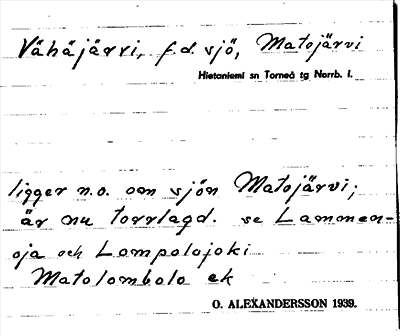 Vähäjärvi, f.d. sjö, Matojärvi
Hietaniemi sn Torneå tg Norrb. l.
ligger n.o. om sjön Matojärvi;
är nu torrlagd. se Lammen-
oja och Lompolojoki
Matolombolo ek
O. ALEXANDERSSON 1939.